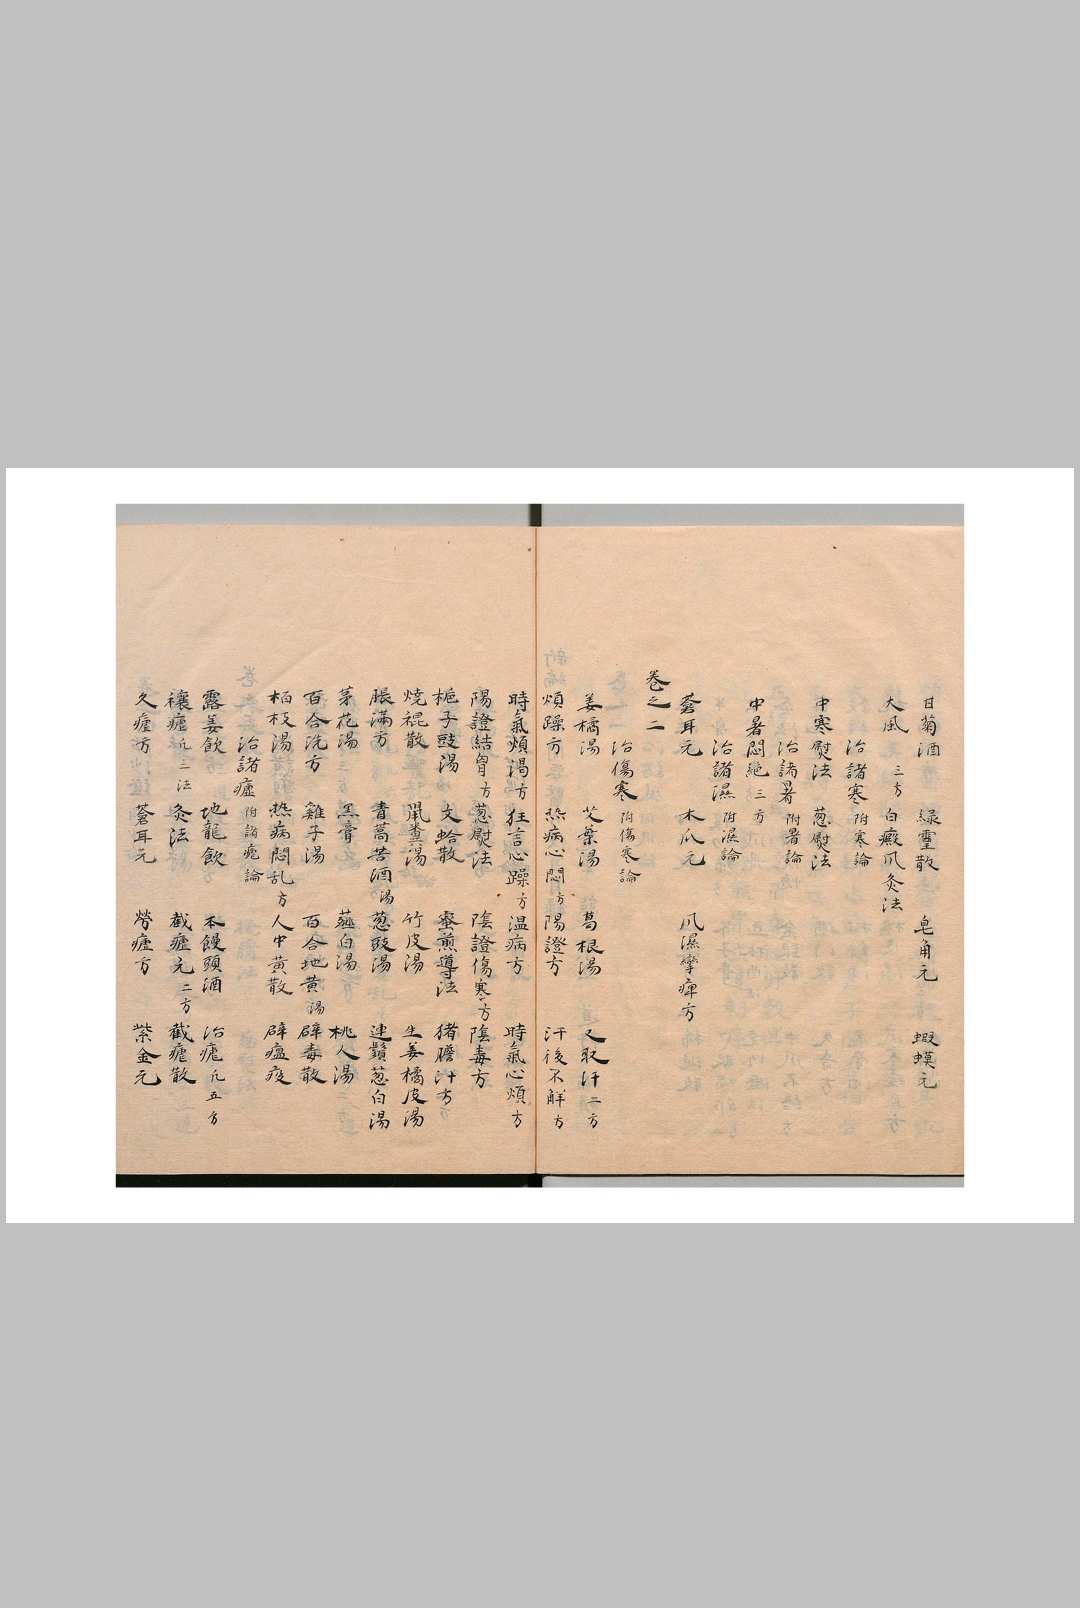 甘菊酒 緑雲散 皂角元 蝦蟆元
大風三方 白癜爪灸法
治諸寒附寒論
中寒熨法 葱熨法
治諸暑附暑論
中暑悶絶三方
治諸濕附濕論
蒼耳元 木瓜元 風濕攣痺方
卷之二
治傷寒附傷寒論
姜橘湯 艾葉湯 葛根湯 又取汗二方
煩躁方 热病心悶方 陽證方 汗後不解方
時氣煩渴方 狂言心躁方 温病方 時氣心煩方
陽證結胷方 葱熨法 陰證傷寒方 陰毒方
梔子豉湯 文蛤散 蜜煎導法 猪膽汁方
燒裩散 鼠糞湯 竹皮湯 生姜橘皮湯
脹滿方 青蒿苦酒湯 葱豉湯 連鬚葱白湯
茅花湯 黑膏 薤白湯 桃人湯
百合洗方 雞子湯 百合地黄湯 辟毒散
栢枝湯 热病悶乱方 人中黄散 辟瘟疫
治諸瘧附諸瘧論
露姜飲 地龍飲 本饅頭酒 治瘧凡五方
禳瘧凡三法 灸法 截瘧元二方 截瘧散
久瘧方 蒼耳元 勞瘧方 紫金元